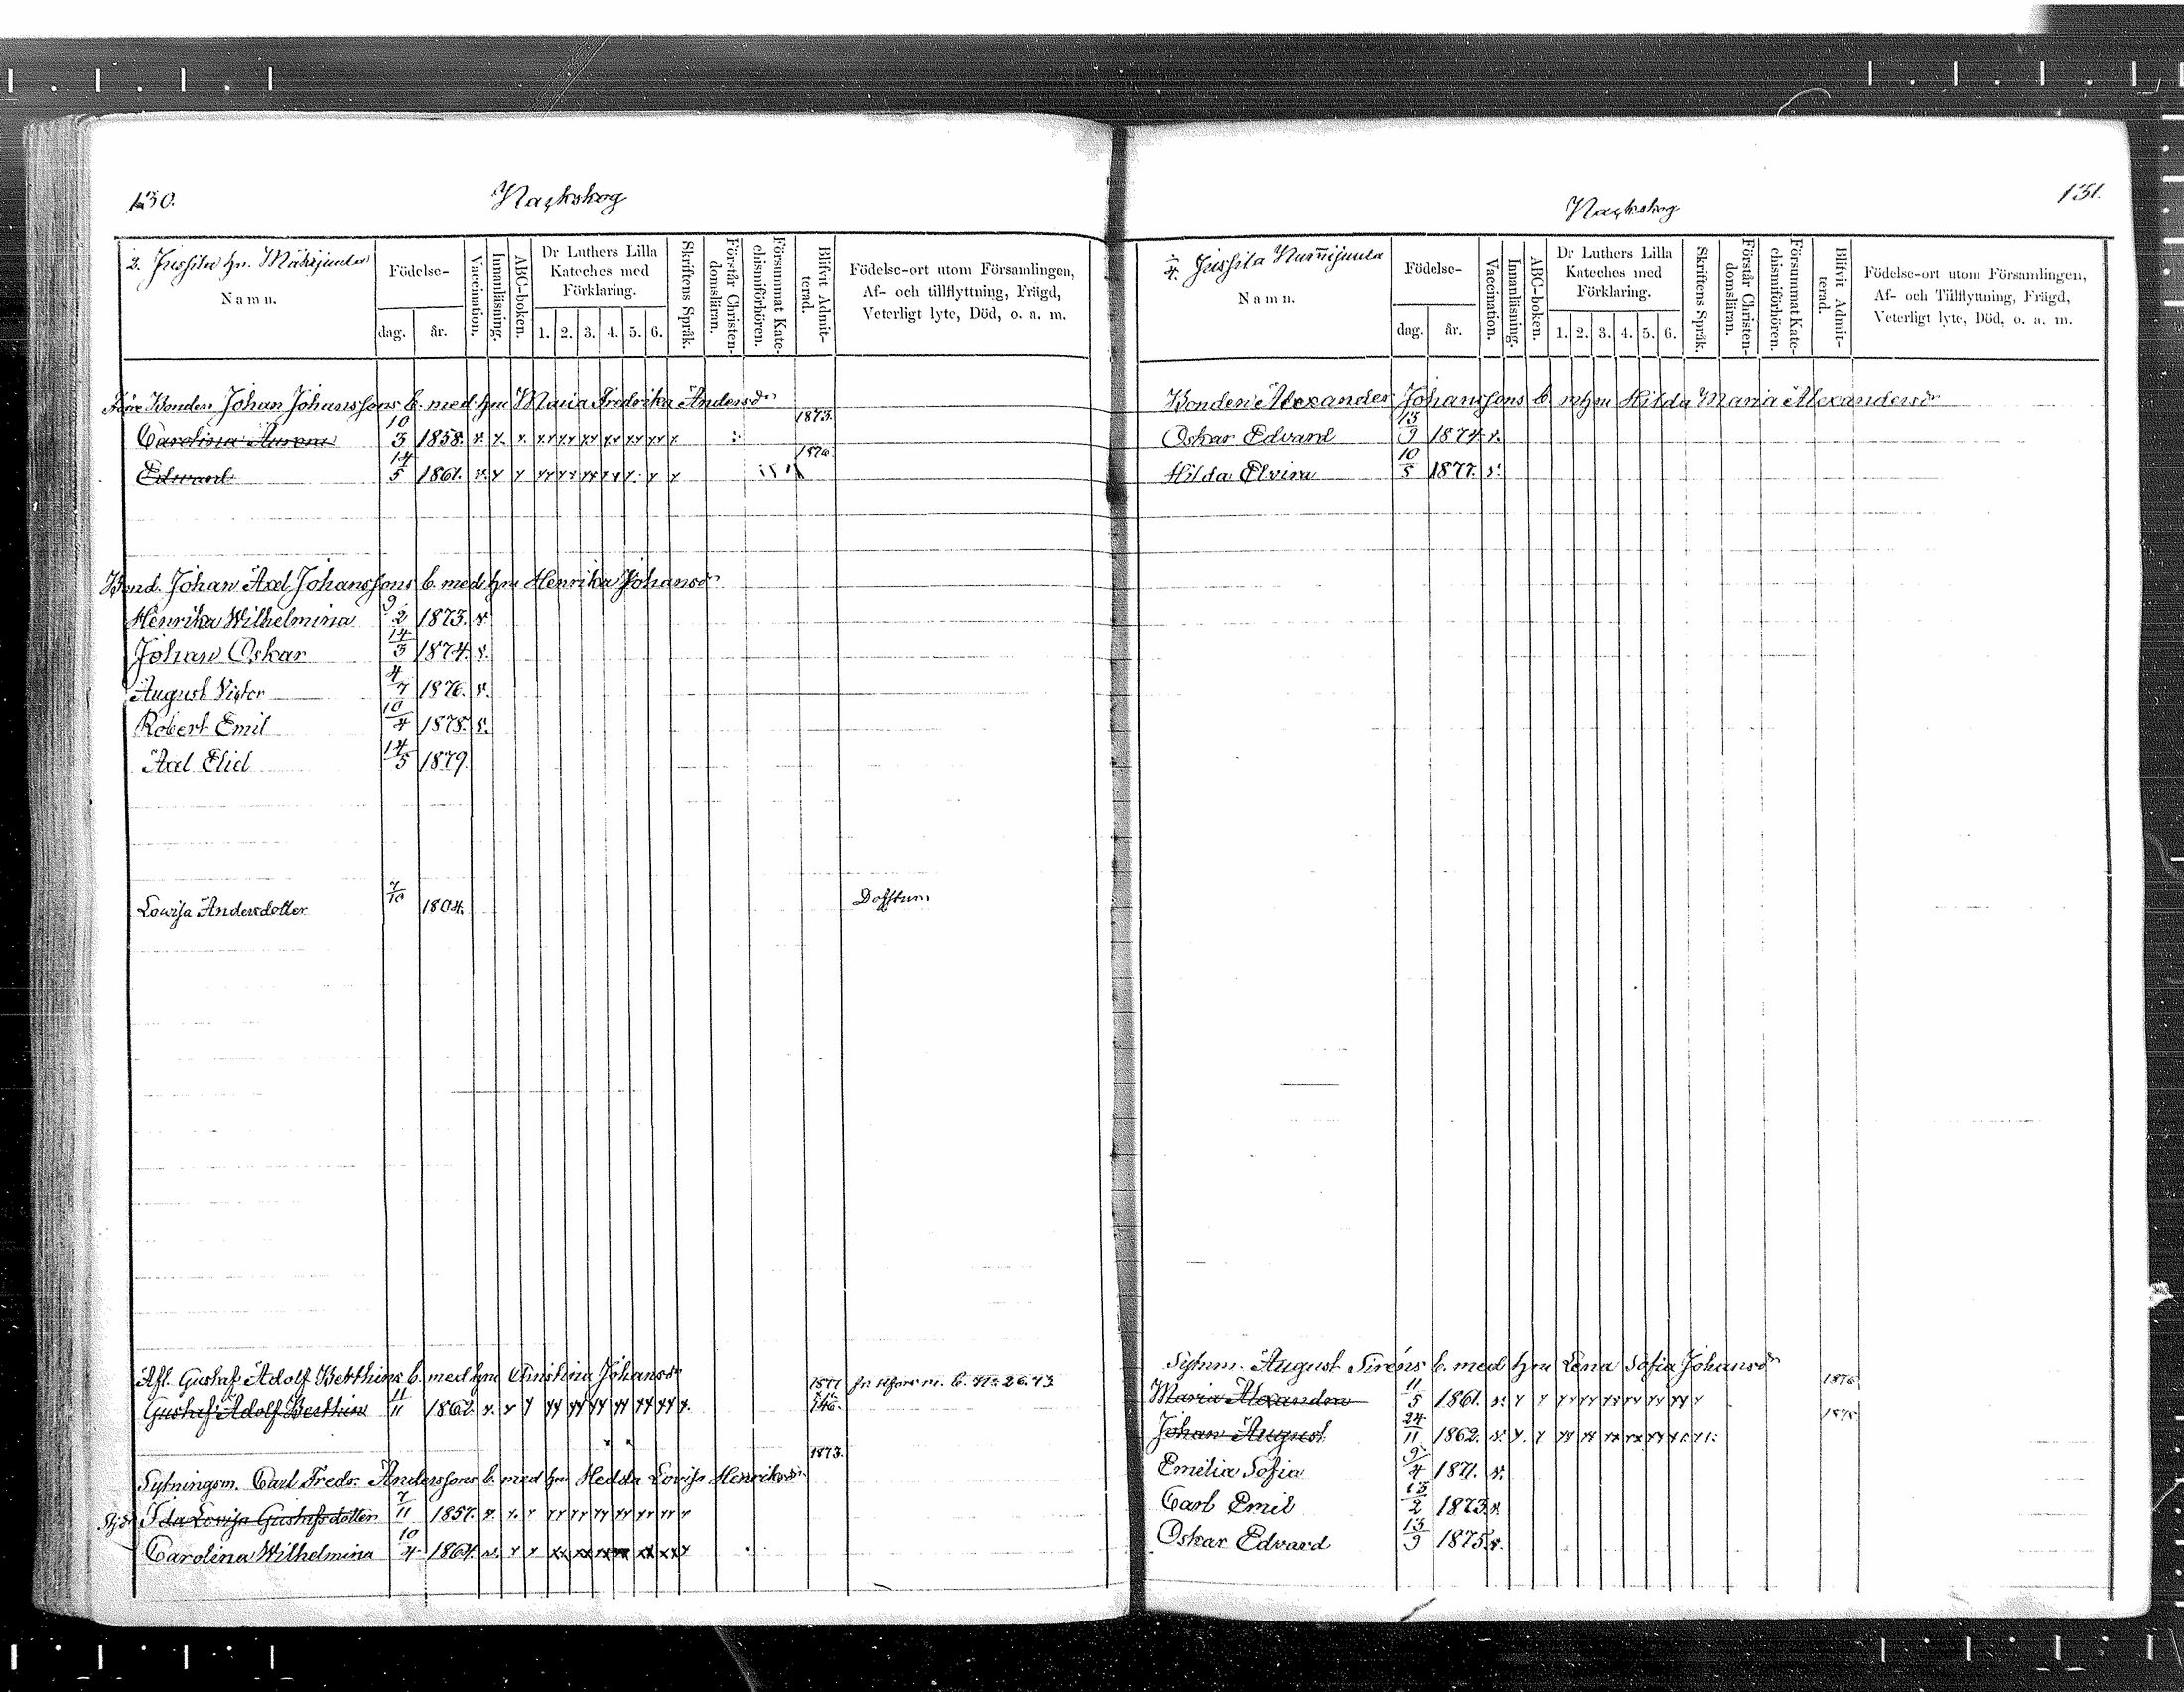 130.
Nackskog
2. Jussila hn. Mäkijunda
Namn.
Födelse-
dag.
år.
Vaccination.
Innanläsning.
ABC-boken.
Dr Luthers Lilla
Kateches med
Förklaring.
1. 2. 3. 4. 5. 6.
Skriftens Språk.
Förstår Christen-
domsläran.
Försummat Kate-
chismiförhören.
Blifvit Admit-
terad.
Födelse-ort utom Församlingen,
Af- och tillflyttning, Frägd,
Veterligt lyte, Död, o. a. m.
Bonden Johan Johanssons b. med hu Maria Fredrika Andersdr
Carolina 10/3 1858. 1873.
Edward 14/5 1861. 1876
Bond. Johan Axel Johanssons b. med hu Henrika Johansdr
Henrika Wilhelmina 9/2 1873.
Johan Oskar 14/3 1874.
August Victor 4/7 1876.
Robert Emil 10/4 1878.
Axel Elid 14/5 1879.
Lovisa Andersdotter 7/10 1804. Dofstum
Afl. Gustaf Adolf Berthins b. med hu Christina Johansdr
Gustaf Adolf Berthin 11/11 1862. 1877
1873.
Sytningsm. Carl Fredr. Anderssons b. med hu Hedda Lovisa Henriksdr
Ida Lovisa Gustafsdotter 7/11 1857.
Carolina Wilhelmina 10/4 1864.
131.
Nackskog
4. Jussila
Namn.
Födelse-
dag.
år.
Vaccination.
Innanläsning.
ABC-boken.
Dr Luthers Lilla
Kateches med
Förklaring.
1. 2. 3. 4. 5. 6.
Skriftens Språk.
Förstår Christen-
domsläran.
Försummat Kate-
chismiförhören.
Blifvit Admit-
terad.
Födelse-ort utom Församlingen,
Af- och Tillflyttning, Frägd,
Veterligt lyte, Död, o. a. m.
Bonden Alexander Johanssons b. m hu Hilda Maria Alexandersdr
Oskar Edvard 13/9 1874
Hilda Elvira 10/5 1877.
Sytnm. August Siréns b. med hu Lena Sofia Johansdr
Maria Alexandra 11/5 1861. 1876
Johan August 24/11 1862. 1878
Emilia Sofia 9/4 1871.
Carl Emil 13/2 1873
Oskar Edvard 13/9 1875